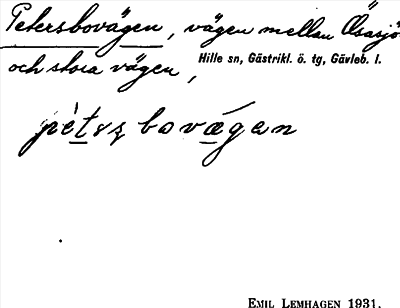 Petersbovägen, vägen mellan Ösasjö
Hille sn, Gästrikl. ö. tg, Gävleb. l.
och stora vägen,
EMIL LEMHAGEN 1931.